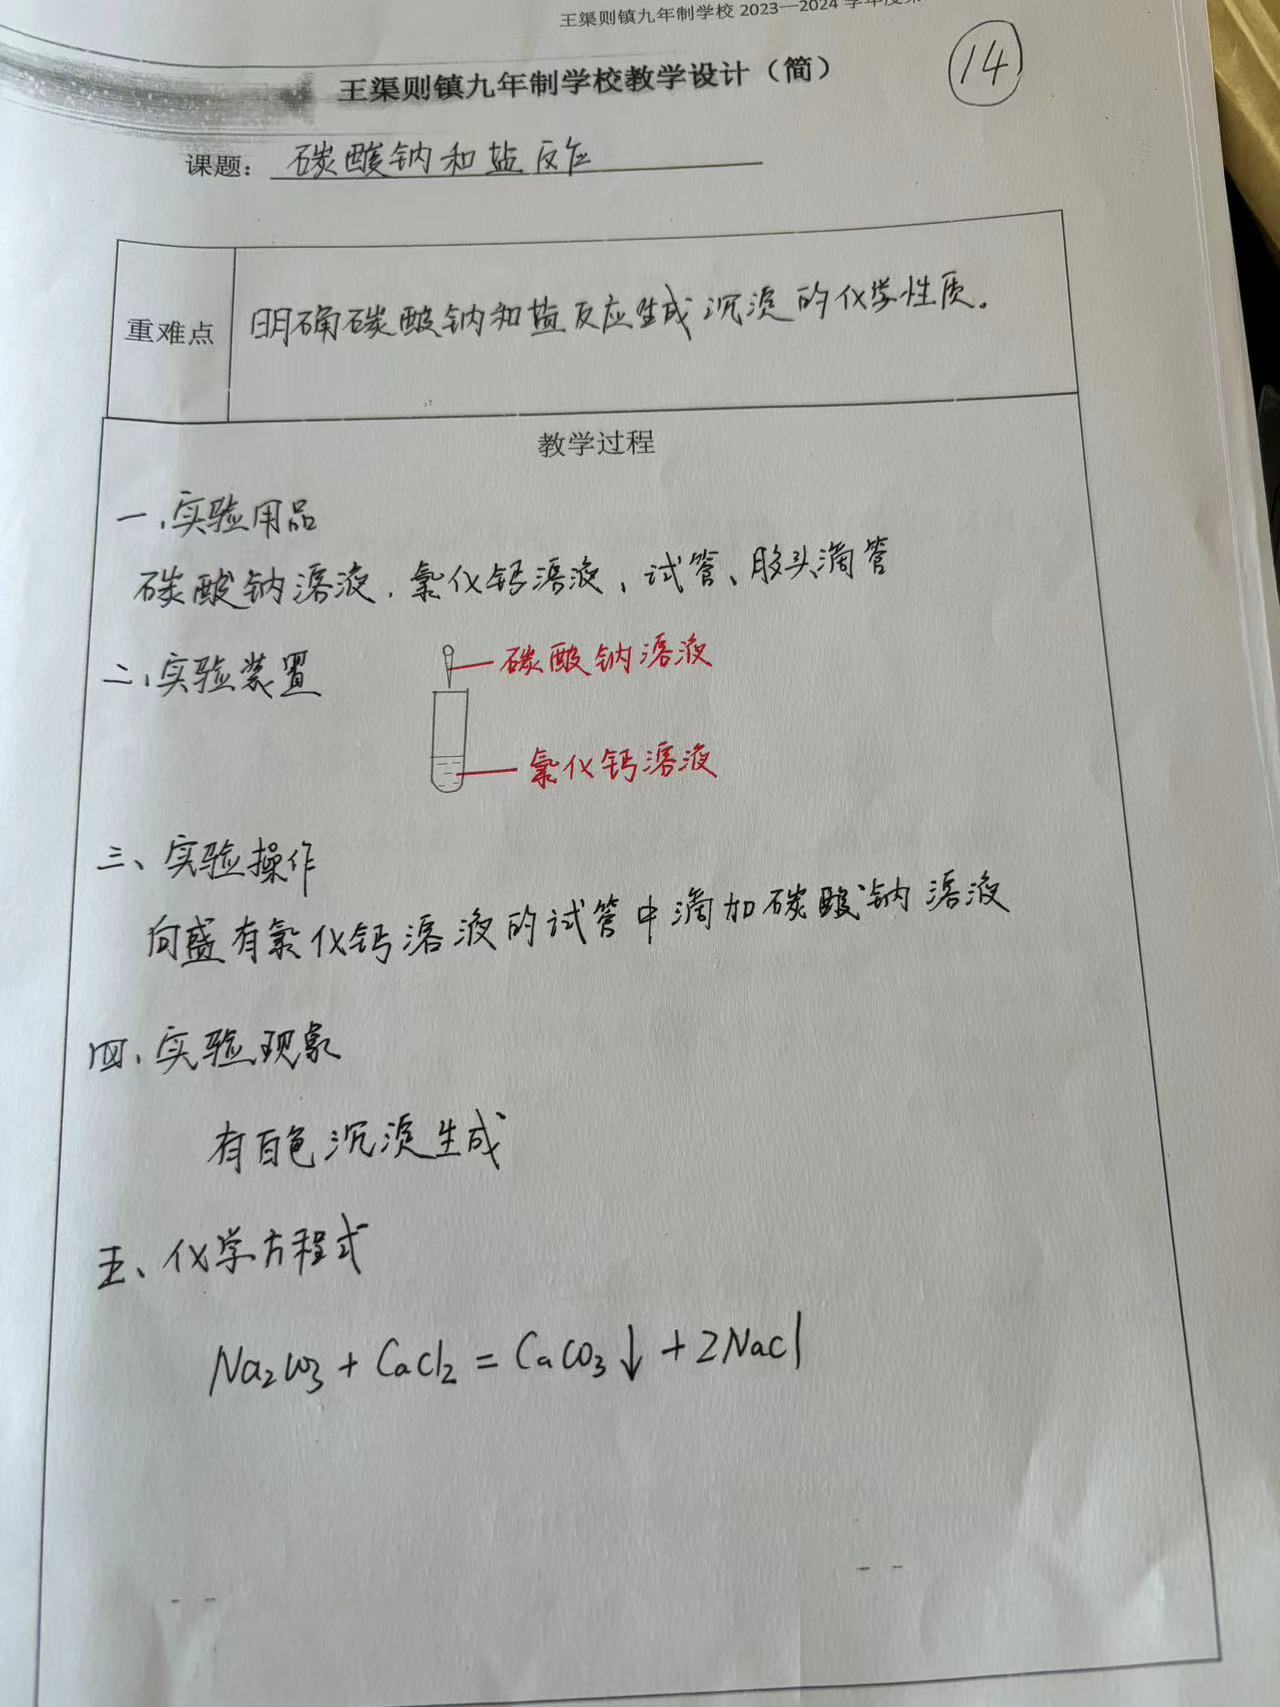 王渠则镇九年制学校 2023—2024 学年度
王渠则镇九年制学校教学设计（简）
14
课题： 碳酸钠和盐反应
重难点
明确碳酸钠和盐反应生成沉淀的化学性质。
教学过程
一、实验用品
碳酸钠溶液、氯化钙溶液、试管、胶头滴管
二、实验装置
碳酸钠溶液
氯化钙溶液
三、实验操作
向盛有氯化钙溶液的试管中滴加碳酸钠溶液
四、实验现象
有白色沉淀生成
五、化学方程式
Na₂CO₃ + CaCl₂ = CaCO₃↓ + 2NaCl